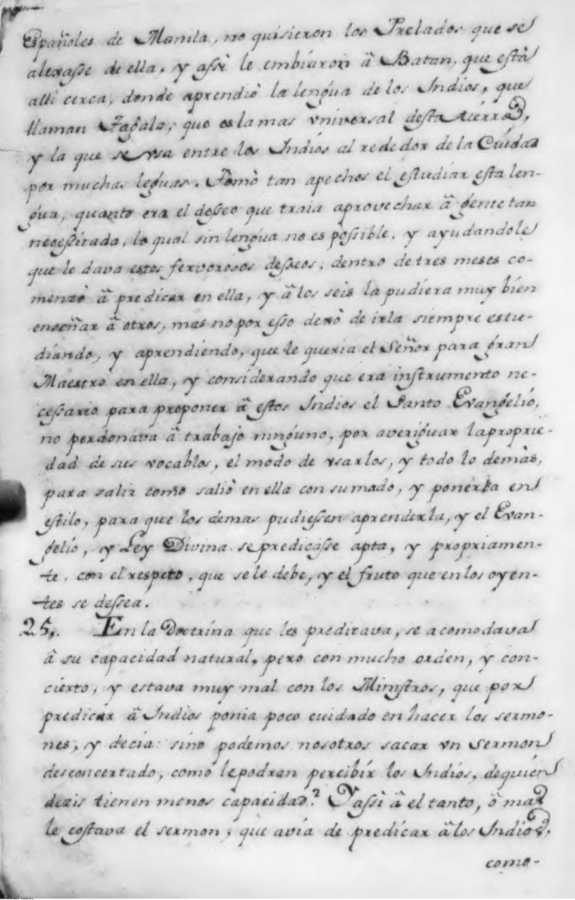 Españoles de Manila, no quisieron los Prelados que se
alexasse de ella, y assi le embiaron â Batan, que està
alli cerca, donde aprendiò la lengua de los Indios, que
llaman Tagala, que es la mas vniversal desta tierra,
y la que se vsa entre los Indios al rededor de la Ciudad
por muchas leguas. Tomò tan apechos el estudiar esta len-
gua, quanto era el desseo que traia aprovechar â gente tan
necessitada, lo qual sin lengua no es possible. y ayudandole
que le dava estos fervorosos desseos, dentro de tres meses co-
menzò â predicar en ella, y â los seis la pudiera muy bien
enseñar â otros, mas no por esso dexò de irla siempre estu-
diando, y aprendiendo, que le queria el Señor para gran
Maestro en ella, y considerando que era instrumento ne-
cessario para proponer â estos Indios el Santo Evangelio,
no perdonava â trabajo ninguno, por averiguar la proprie-
dad de sus vocablos, el modo de vsarlos, y todo lo demàs,
para salir como saliò en ella consumado, y ponerla en
estilo, para que los demas pudiessen aprenderla, y el Evan-
gelio, y Ley Divina se predicasse apta, y propriamen-
te, con el respeto, que se le debe, y el fruto que en los oyen-
tes se dessea.
25. En la Doctrina que les predicava, se acomodava
â su capacidad natural, pero con mucho orden, y con-
cierto, y estava muy mal con los Ministros, que por
predicar â Indios ponia poco cuidado en hacer los sermo-
nes, y decia: sino podemos nosotros sacar vn Sermon
desconcertado, como le podran percibir los Indios, de quien
decis tienen menos capacidad? Y assi â el tanto, ô mas
le costava el sermon, que avia de predicar â los Indios,
como-